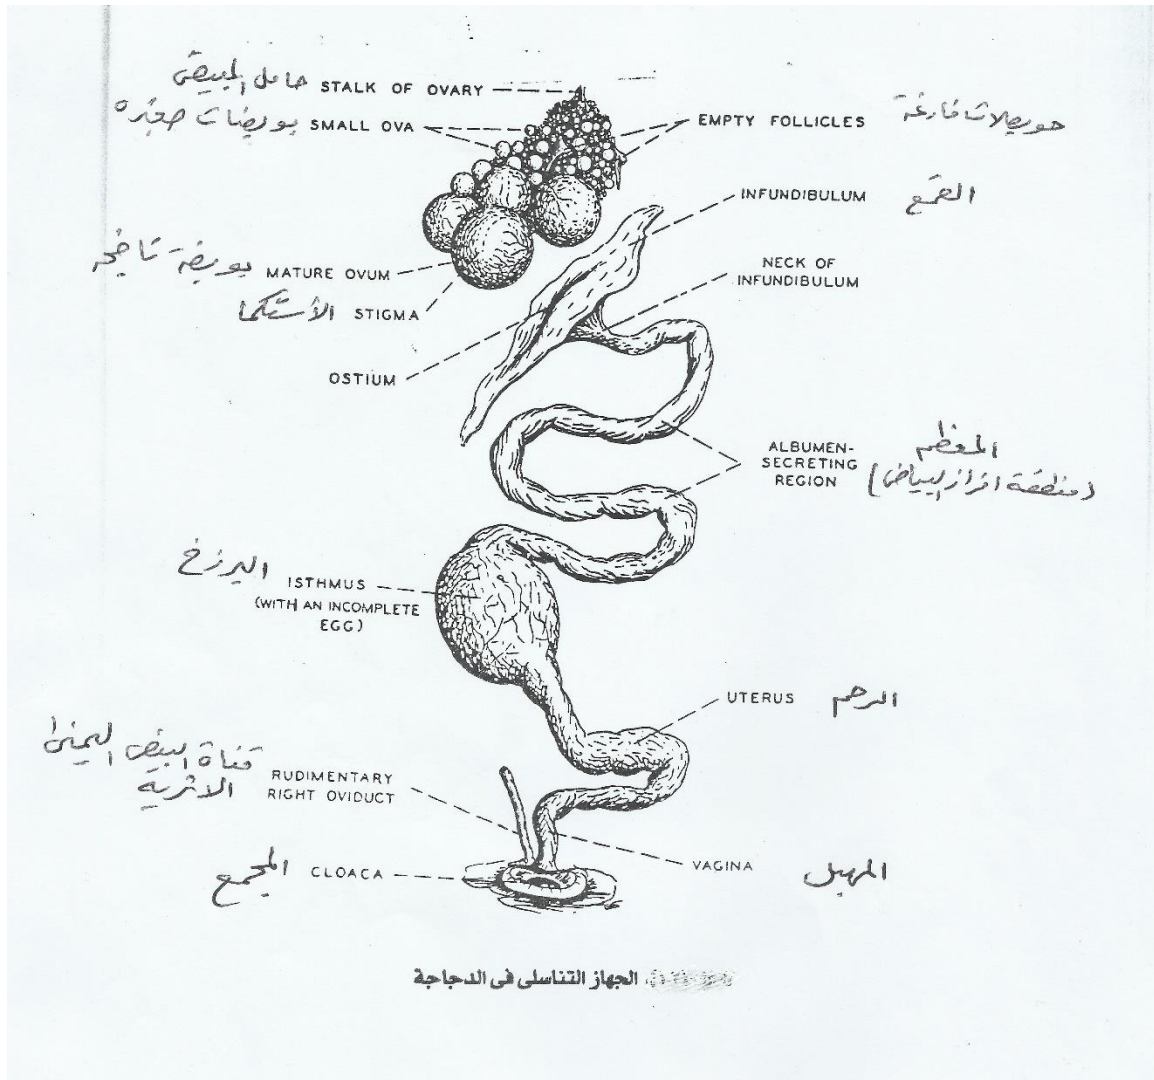 حامل المبيض STALK OF OVARY
بويضات صغيره SMALL OVA
EMPTY FOLLICLES حويصلات فارغة
INFUNDIBULUM القمع
NECK OF
INFUNDIBULUM
بويضة ناضجه MATURE OVUM
الأستكما STIGMA
OSTIUM
ALBUMEN-
SECRETING
REGION
المعظم
(منطقة افراز البياض)
البرزخ ISTHMUS
(WITH AN INCOMPLETE
EGG)
UTERUS الرحم
قناة البيض اليمنى
الاثرية
RUDIMENTARY
RIGHT OVIDUCT
المجمع CLOACA
VAGINA المهبل
الجهاز التناسلى فى الدجاجة